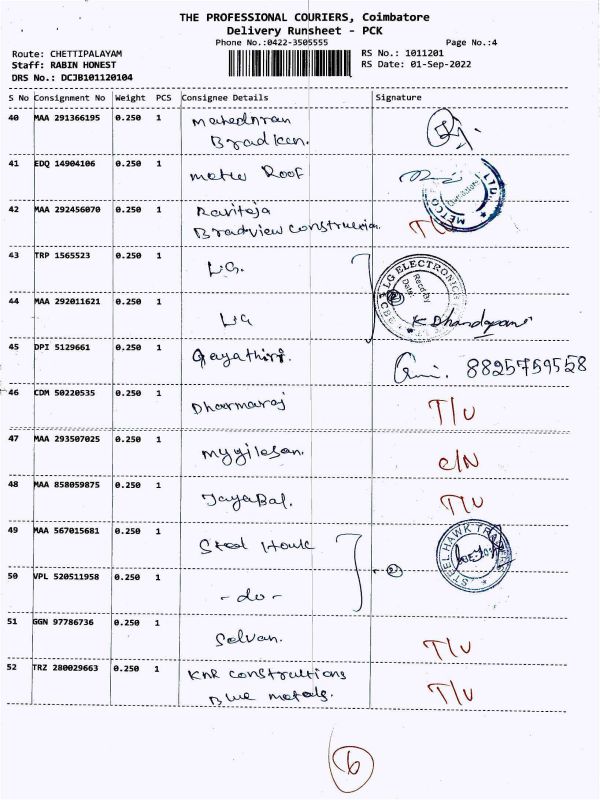 THE PROFESSIONAL COURIERS, Coimbatore
Delivery Runsheet - PCK
Phone No.:0422-3505555 Page No.:4
Route: CHETTIPALAYAM RS No.: 1011201
Staff: RABIN HONEST RS Date: 01-Sep-2022
DRS No.: DCJB101120104
S No Consignment No Weight PCS Consignee Details Signature
40 MAA 291366195 0.250 1
Bradken.
41 EDQ 14904106 0.250 1 metco Roof
METCO LTD
42 MAA 292456070 0.250 1 Raviteja T/U
Bradview construction.
43 TRP 1565523 0.250 1 LG.
LG ELECTRONICS
Recd By
Date:
44 MAA 292011621 0.250 1 LG K Dhandapani
45 DPI 5129661 0.250 1 Gayathiri. 8825759558
46 CDM 50220535 0.250 1 Dharmaraj T/U
47 MAA 293507025 0.250 1 mygilesan. C/N
48 MAA 858059875 0.250 1 Jayabal. T/U
49 MAA 567015681 0.250 1 Steel Hawk
STEEL HAWK TRADERS
2
50 VPL 520511958 0.250 1 - do -
51 GGN 97786736 0.250 1 Selvan. T/U
52 TRZ 280029663 0.250 1 KNR constructions T/U
Blue metals.
6